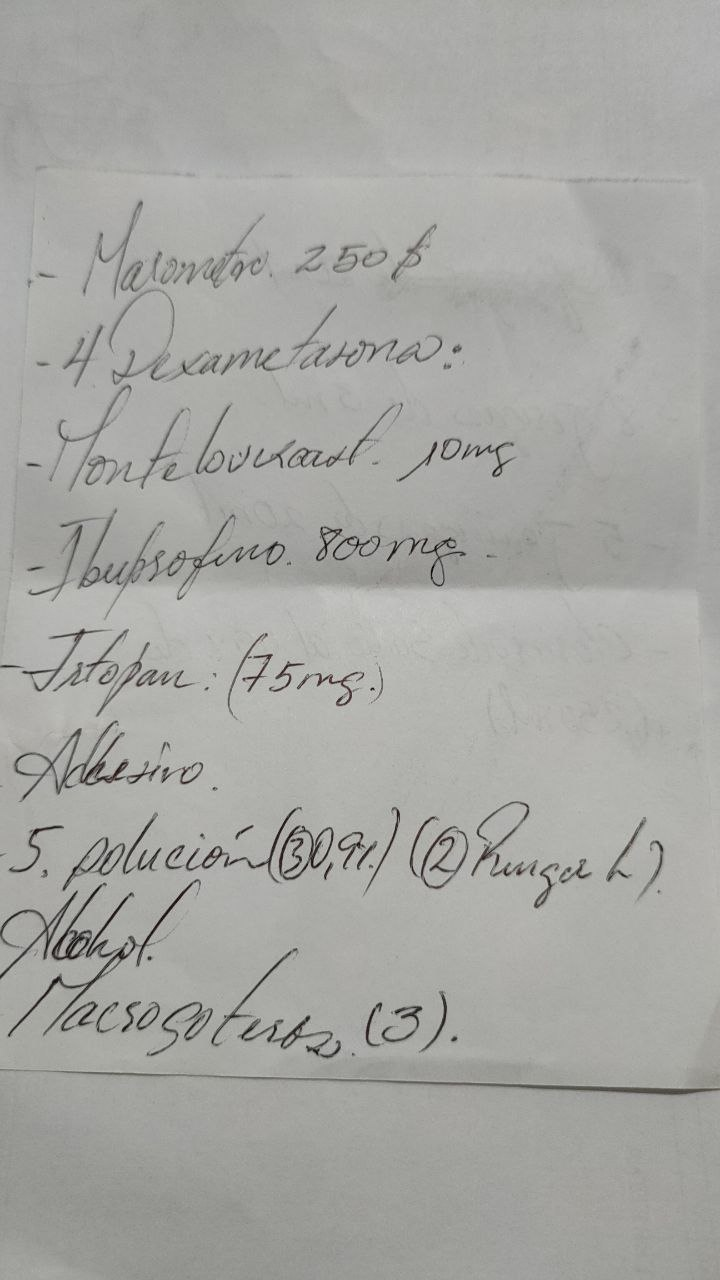 - 250 $
- 4 Dexametasona:
- Montelouxcast. 10mg
- Ibuprofeno. 800mg.
- Irtopan: (75mg.)
Adhesivo.
- 5. solución (③0,9%.) (② Ringer L).
Alcohol.
Macrogoteros. (3).